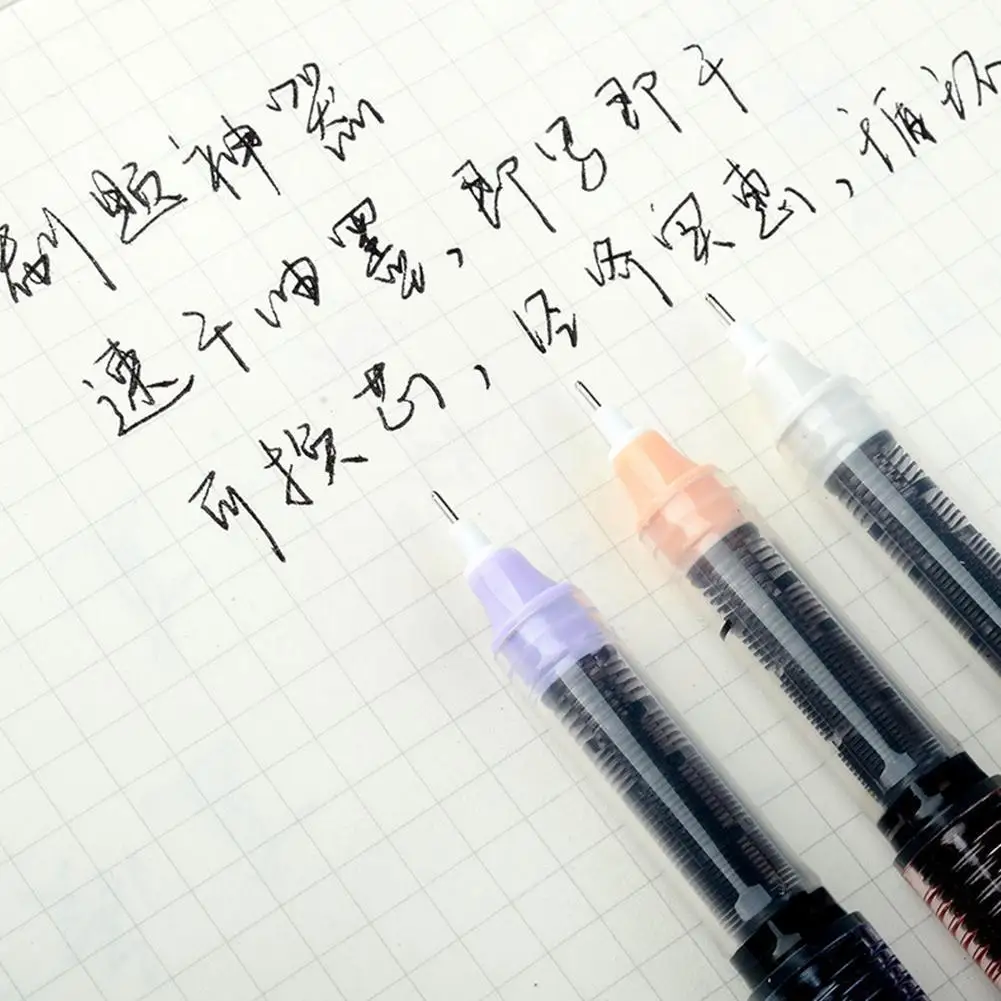 刷题神器
速干油墨，即写即干
可换芯，经济实惠，循环